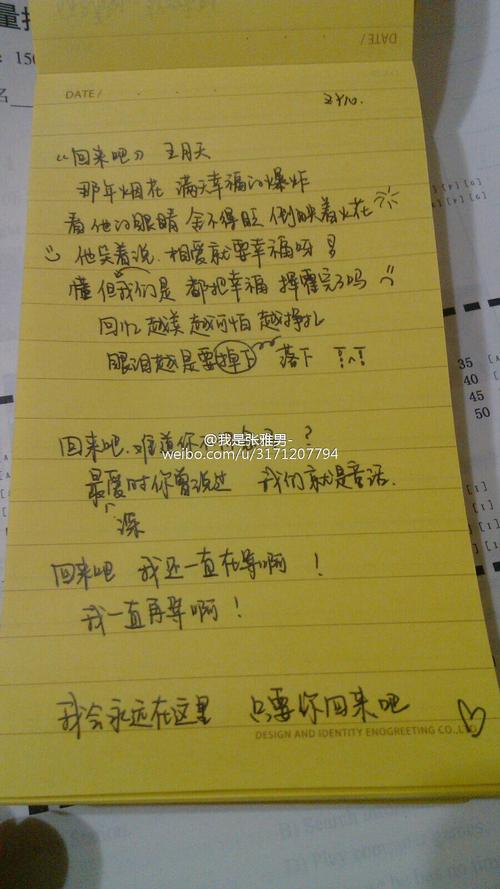 DATE /
DATE /
《回来吧》 王月天
那年烟花 满天幸福的爆炸
看他的眼睛 舍不得眨 倒映着火花
他笑着说.相爱就要幸福呀 多
懂 但我们是 都把幸福 挥霍完了吗
回忆越美 越可怕 越挣扎
眼泪越是要掉下 落下 T^T
回来吧.难道你 ?
@我是张雅男-
weibo.com/u/3171207794
最爱时你曾说过 我们就是童话.
深
回来吧 我还一直在等啊 !
我一直再等啊 !
我会永远在这里 只要你回来吧
DESIGN AND IDENTITY ENOGREETING CO.,LTD
35
40
45
50